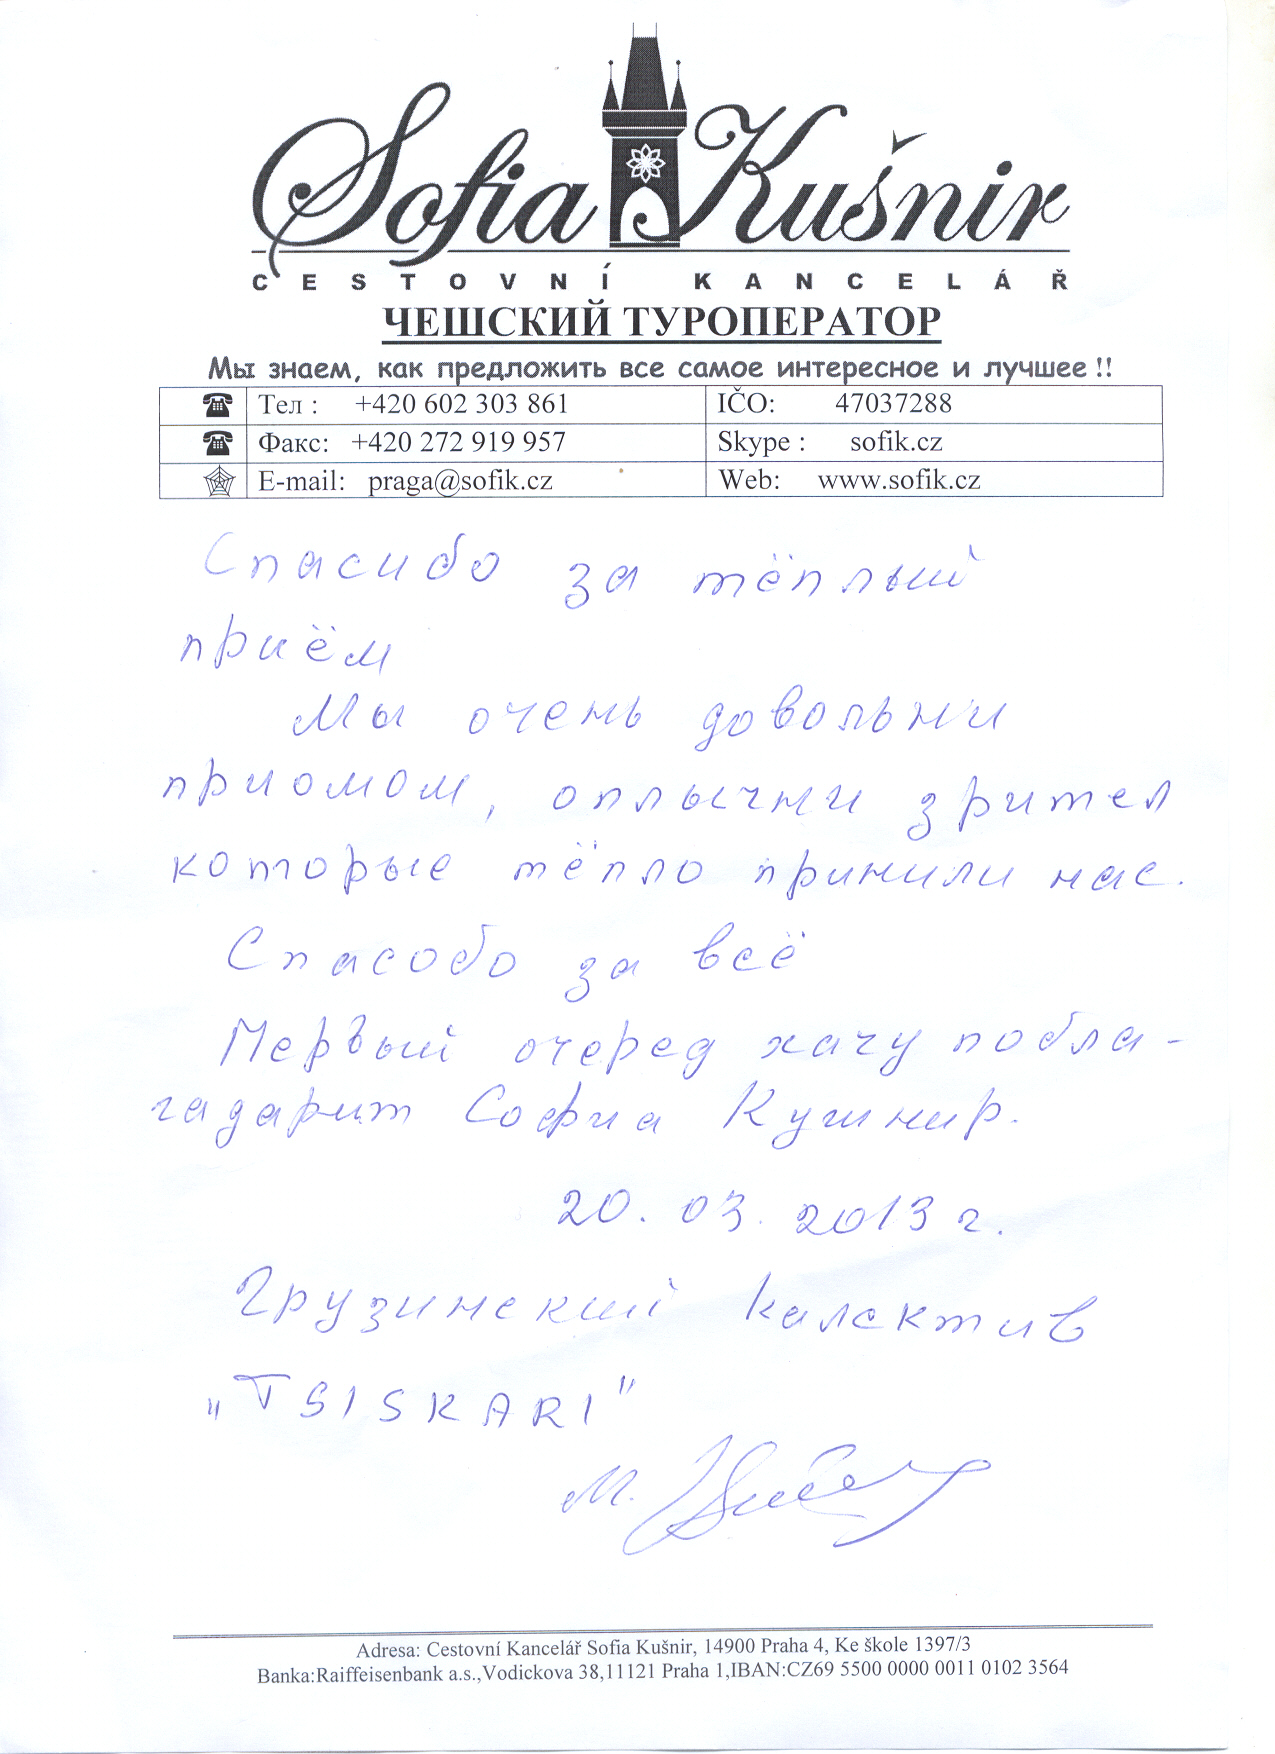 Sofia Kušnir
CESTOVNÍ KANCELÁŘ
ЧЕШСКИЙ ТУРОПЕРАТОР
Мы знаем, как предложить все самое интересное и лучшее !!
Тел : +420 602 303 861 IČO: 47037288
Факс: +420 272 919 957 Skype : sofik.cz
E-mail: praga@sofik.cz Web: www.sofik.cz
Спасибо за тёплый
приём
Мы очень довольни
приомом, оплычни зрител
которые тёпло принили нас.
Спасобо за всё
Первый очеред хачу побла-
гадарит София Кушнир.
20. 03. 2013 г.
Грузинский калектив
„TSISKARI"
М.
Adresa: Cestovní Kancelář Sofia Kušnir, 14900 Praha 4, Ke škole 1397/3
Banka:Raiffeisenbank a.s.,Vodickova 38,11121 Praha 1,IBAN:CZ69 5500 0000 0011 0102 3564